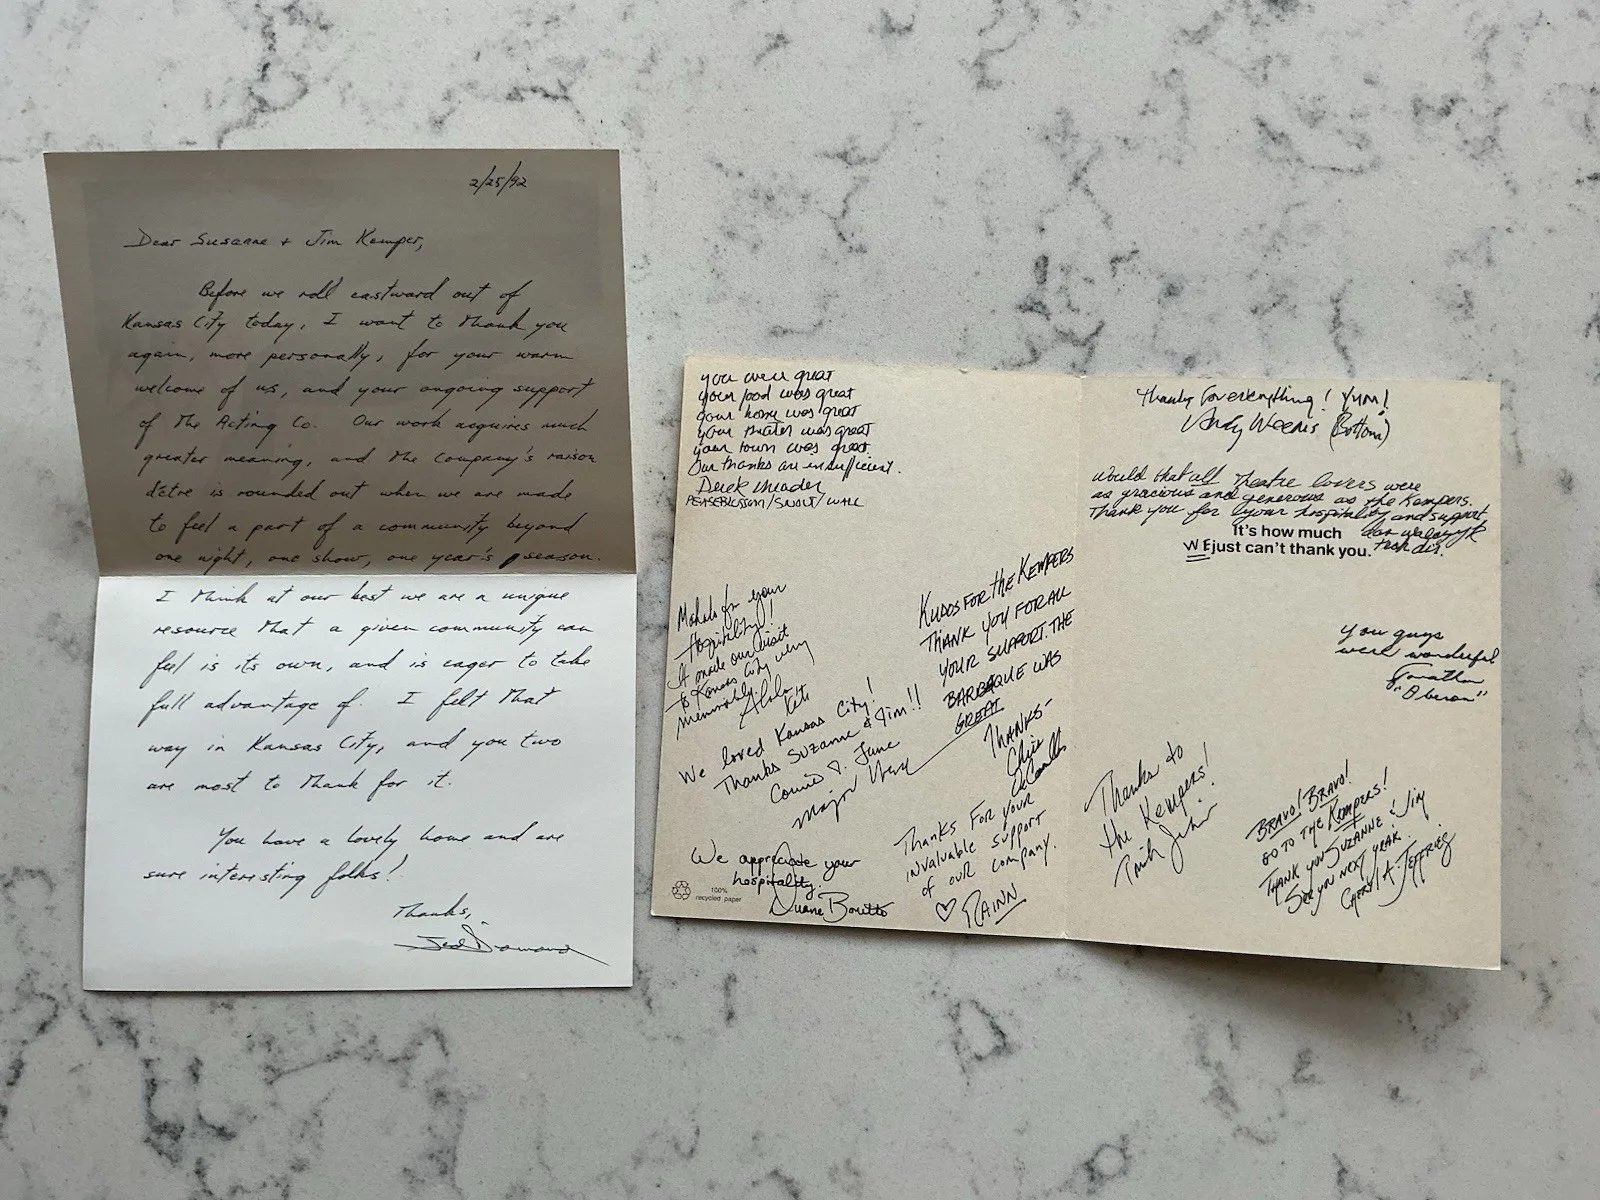 2/25/92
Dear Susanne + Jim Kemper,
Before we roll eastward out of
Kansas City today, I want to thank you
again, more personally, for your warm
welcome of us, and your ongoing support
of The Acting Co. Our work acquires much
greater meaning, and the company's raison
d'etre is rounded out when we are made
to feel a part of a community beyond
one night, one show, one year's season.
I think at our best we are a unique
resource that a given community can
feel is its own, and is eager to take
full advantage of. I felt that
way in Kansas City, and you two
are most to thank for it.
You have a lovely home and are
sure interesting folks!
Thanks,
you were great
your food was great
your home was great
your theater was great
your town was great.
Our thanks are insufficient.
Derek Meader
PEASEBLOSSOM/SNOUT/WALL
Mahalo for your
Hospitality!
It made our visit
to Kansas City very
memorable.
Aloha
KUDOS FOR the KEMPERS
THANK YOU FOR ALL
YOUR SUPPORT. THE
BARBAQUE WAS
GREAT
THANKS-
Chris
We loved Kansas City!
Thanks Suzanne & Jim!!
Connie & June
We appreciate your
hospitality.
Duane Boutté
100%
recycled paper
Thanks For your
invaluable support
of our company.
♡ RAINN
Thanks for everything! YUM!
Andy Weems (Bottom)
Would that all theatre lovers were
as gracious and generous as the Kempers.
Thank you for your hospitality and support
It's how much
WE just can't thank you.
tech dir.
You guys
were wonderful
Jonathan
"Oberon"
Thanks to
the Kempers!
BRAVO! BRAVO!
GO TO THE KEMPERS!
THANK YOU SUZANNE & JIM
SEE YOU NEXT YEAR.
CHERYL A. JEFFRIES